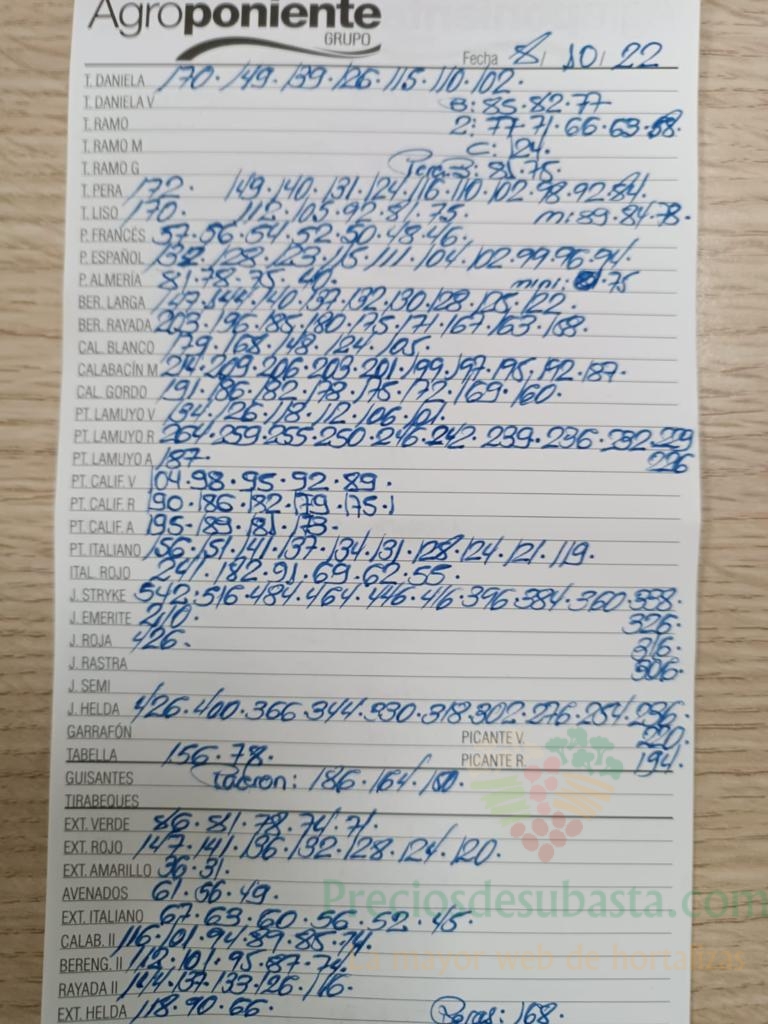 Agroponiente
GRUPO
Fecha 8/ 10/ 22
T. DANELA 170. 149. 139. 126. 115. 110. 102.
T. DANELA V B: 85. 82. 77
T. RAMO 2: 77. 71. 66. 63. 58.
T. RAMO M C: 124.
T. RAMO G Pera B: 81. 75.
T. PERA 172. 149. 140. 131. 124. 116. 110. 102. 98. 92. 84.
T. LISO 170. 112. 105. 92. 81. 75. m: 89. 84. 78.
P. FRANCÉS 57. 56. 54. 52. 50. 48. 46.
P. ESPAÑOL 132. 128. 123. 115. 111. 104. 102. 99. 96. 94.
P. ALMERÍA 81. 78. 75. 40. mini: 75
BER. LARGA 147. 144. 140. 137. 132. 130. 128. 125. 122.
BER. RAYADA 203. 196. 185. 180. 175. 171. 167. 163. 158.
CAL. BLANCO 179. 168. 148. 124. 105.
CALABACÍN M. 214. 209. 206. 203. 201. 199. 197. 195. 192. 187.
CAL. GORDO 191. 186. 182. 178. 175. 172. 169. 160.
PT. LAMUYO V 134. 126. 118. 112. 106. 101.
PT. LAMUYO R 264. 259. 255. 250. 246. 242. 239. 236. 232. 229
PT. LAMUYO A 187. 226
PT. CALIF. V 104. 98. 95. 92. 89.
PT. CALIF. R 190. 186. 182. 179. 175.
PT. CALIF. A 195. 189. 181. 173.
PT. ITALIANO 156. 151. 141. 137. 134. 131. 128. 124. 121. 119.
ITAL. ROJO 241. 182. 91. 69. 62. 55.
J. STRYKE 542. 516. 484. 464. 446. 416. 396. 384. 360. 338.
J. EMERITE 210. 326.
J. ROJA 426. 316.
J. RASTRA 306.
J. SEMI
J. HELDA 426. 400. 366. 344. 330. 318. 302. 276. 254. 236.
GARRAFÓN PICANTE V. 220.
TABELLA 156. 78. PICANTE R. 194.
GUISANTES 186. 164. 150.
TIRABEQUES
EXT. VERDE 86. 81. 78. 74. 71.
EXT. ROJO 147. 141. 136. 132. 128. 124. 120.
EXT. AMARILLO 36. 31.
AVENADOS 61. 56. 49.
Preciosdesubasta.com
EXT. ITALIANO 67. 63. 60. 56. 52. 45.
CALAB. II 116. 101. 94. 89. 85. 74.
La mayor web de hortalizas
BERENG. II 112. 101. 95. 87. 74.
RAYADA II 144. 137. 133. 126. 116.
EXT. HELDA 118. 90. 66. Peras: 168.